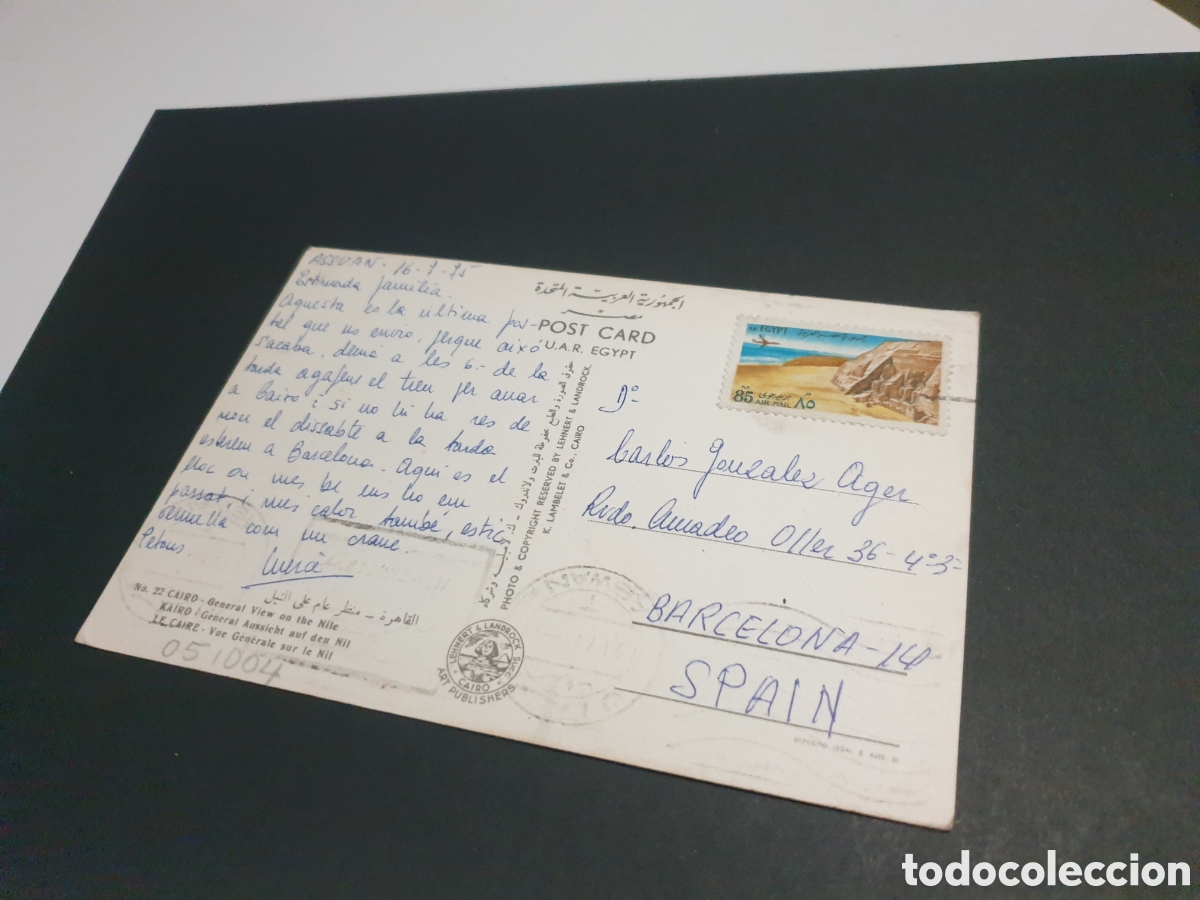 ASSUAN - 16-7-75
Estimada familia.
Aquesta es la última pos-
tal que us envio, perque aixó
s'acaba, demá a les 6.- de la
tarda agafem el tren per anar
a Cairo i si no hi ha res de
nou el dissabte a la tarda
estarem a Barcelona. Aqui es el
lloc on mes be ens ho em
passat i mes calor també, estic
vermella com un cranc.
Petons.
الجمهورية العربية المتحدة
مصر
POST CARD
U.A.R. EGYPT
PHOTO & COPYRIGHT RESERVED BY LEHNERT & LANDROCK
K. LAMBELET & Co., CAIRO
A.R. EGYPT
85 AIR MAIL ٨٥
D.
Carlos Gonzalez Ager
Rvdo. Amadeo Oller 36-4º-3ª
BARCELONA-14
SPAIN
القاهرة - منظر عام على النيل
No. 22 CAIRO - General View on the Nile
KAIRO - General Aussicht auf den Nil
LE CAIRE - Vue Générale sur le Nil
051004
LEHNERT & LANDROCK SUCC.
CAIRO
ART PUBLISHERS
todocoleccion